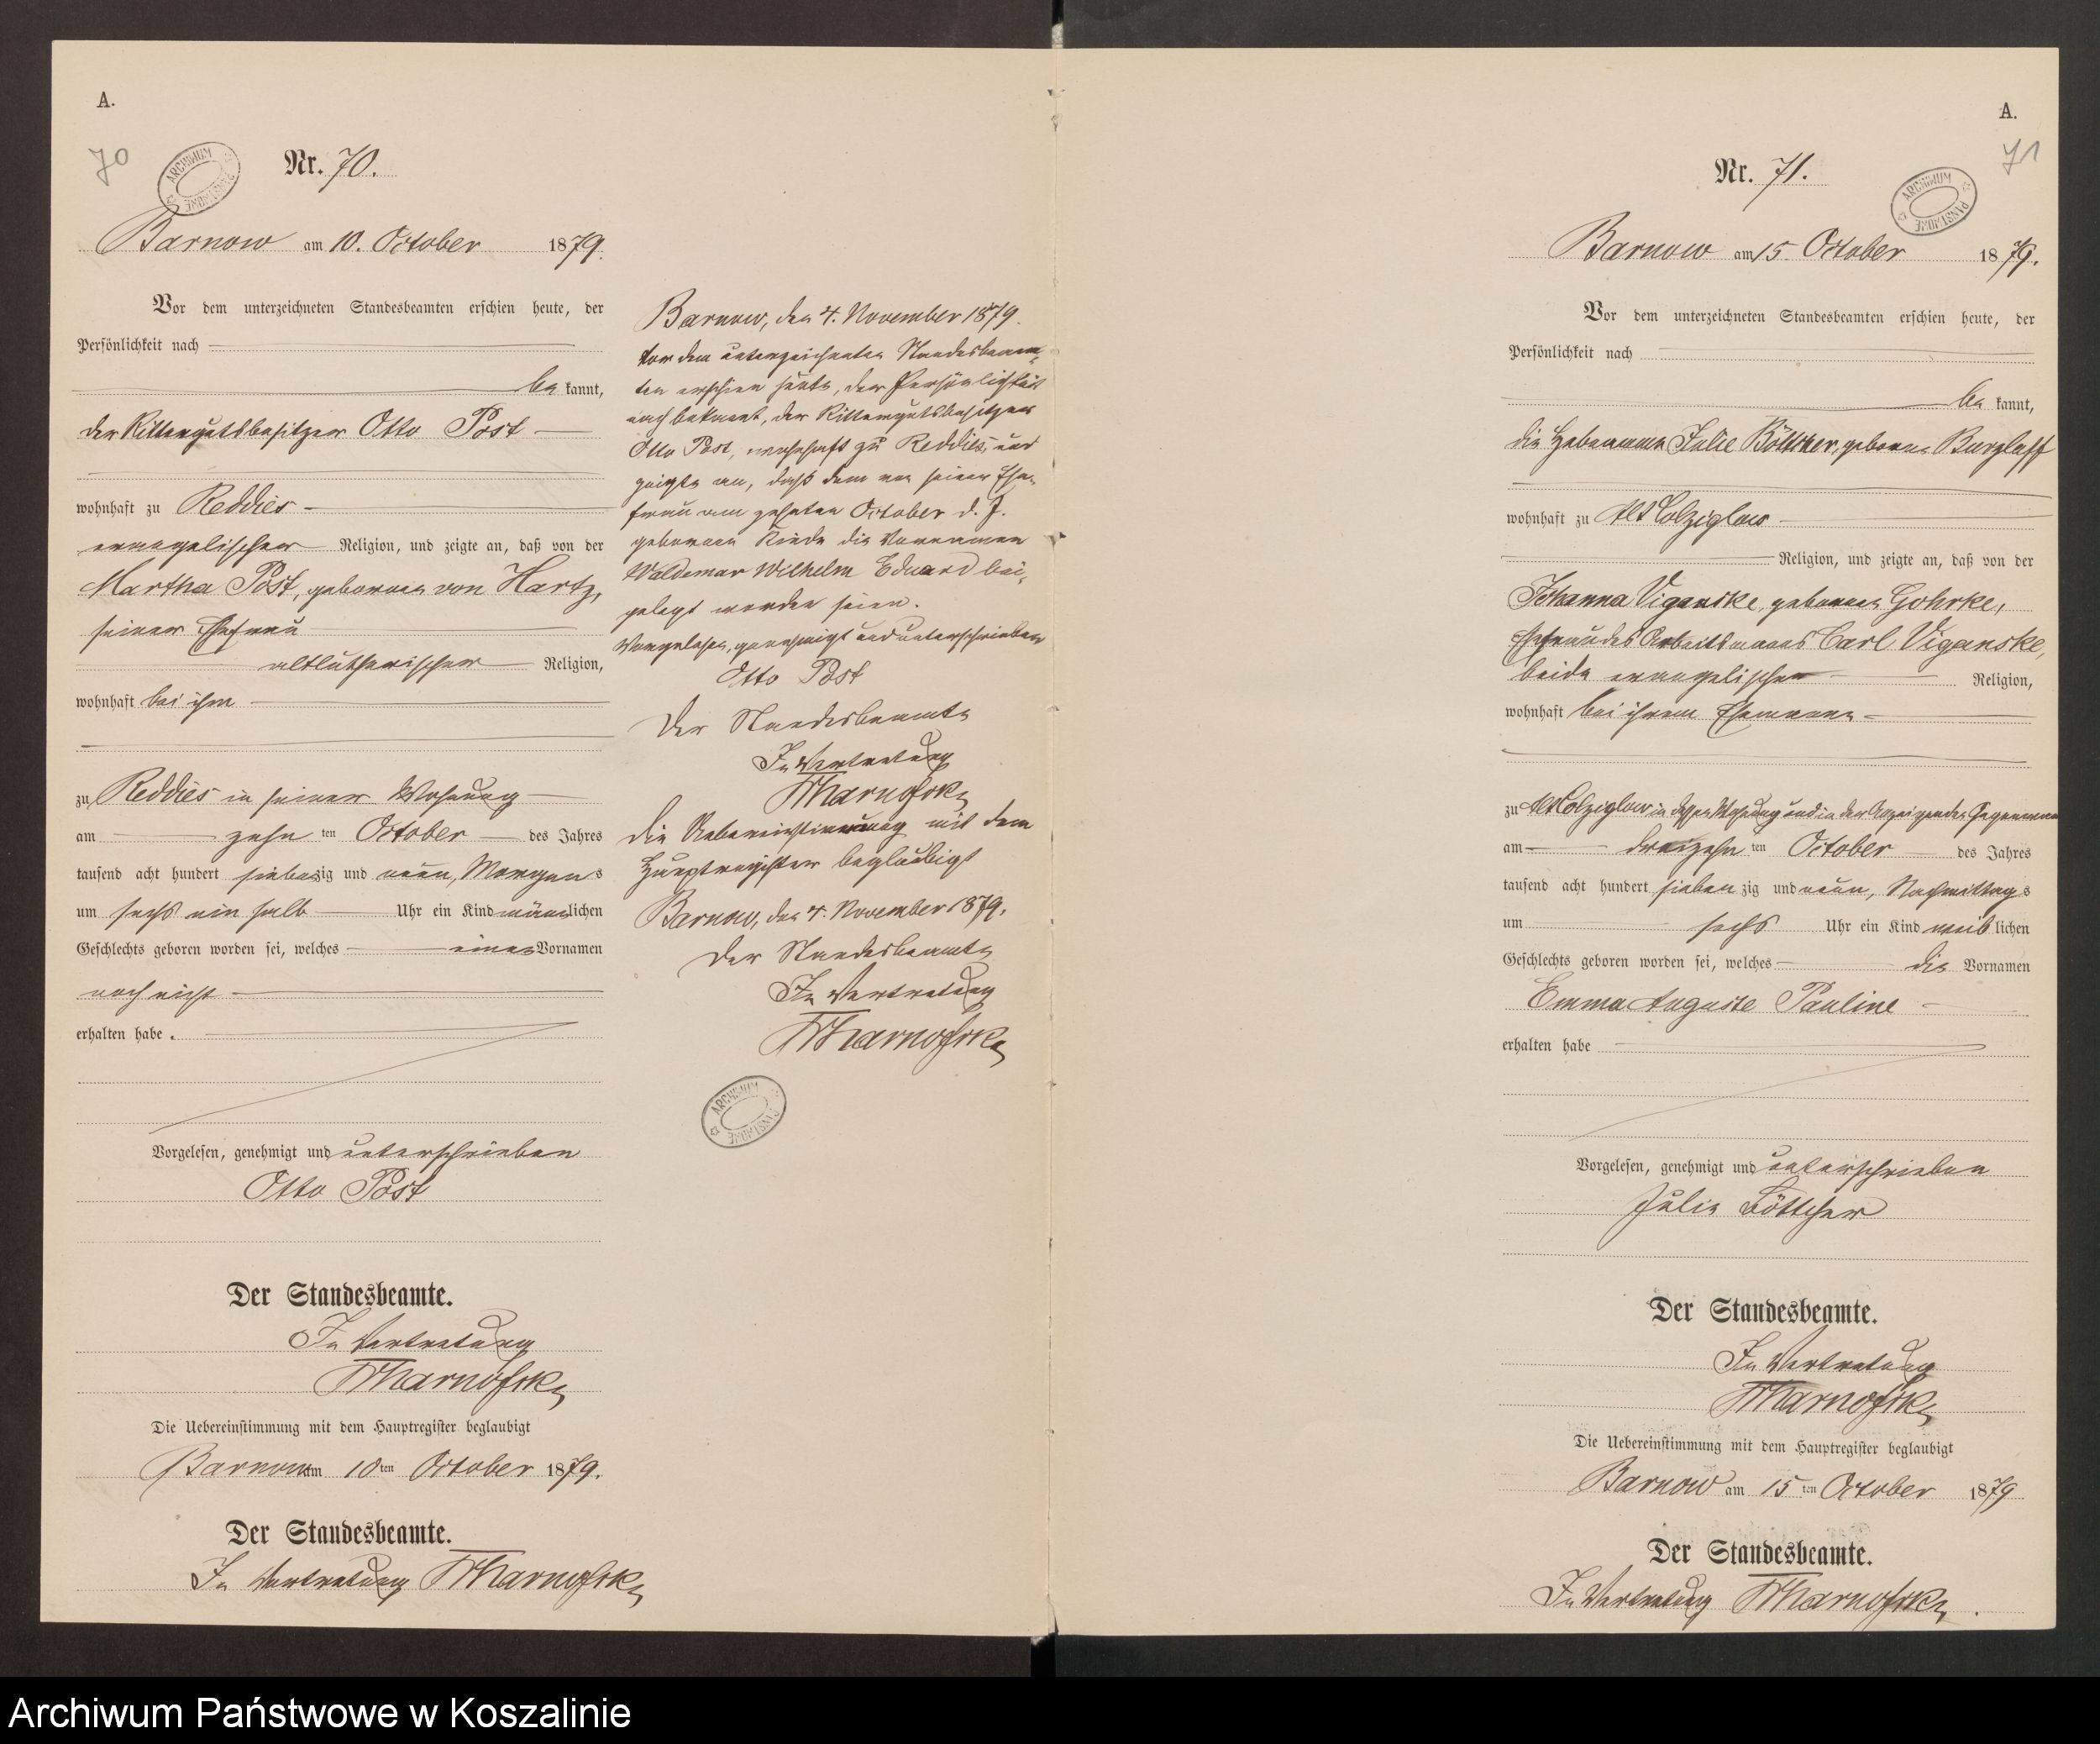 A.
70
Nr. 70.
ARCHIWUM PAŃSTWOWE
Barnow am 10. October 1879.
Vor dem unterzeichneten Standesbeamten erschien heute, der
Persönlichkeit nach
bekannt,
der Rittergutsbesitzer Otto Post
wohnhaft zu Reddies
evangelischer Religion, und zeigte an, daß von der
Martha Post, geborenen von Hartz,
seiner Ehefrau
altlutherischer Religion,
wohnhaft bei ihm
zu Reddies in seiner Wohnung
am zehn ten October des Jahres
tausend acht hundert siebenzig und neun, Morgens
um sechs ein halb Uhr ein Kind männlichen
Geschlechts geboren worden sei, welches einen Vornamen
noch nicht
erhalten habe.
Vorgelesen, genehmigt und unterschrieben
Otto Post
Der Standesbeamte.
In Vertretung
Die Uebereinstimmung mit dem Hauptregister beglaubigt
Barnow am 10ten October 1879.
Der Standesbeamte.
In Vertretung
Barnow, den 4. November 1879.
Vor dem unterzeichneten Standesbeam-
ten erschien heute, der Persönlichkeit
nach bekannt, der Rittergutsbesitzer
Otto Post, wohnhaft zu Reddies, und
zeigte an, daß dem von seiner Ehe-
frau am zehnten October d. J.
geborenen Kinde die Vornamen
Waldemar Wilhelm Eduard bei-
gelegt worden seien.
Vorgelesen, genehmigt und unterschrieben
Otto Post
Der Standesbeamte
In Vertretung
Die Uebereinstimmung mit dem
Hauptregister beglaubigt
Barnow, den 4. November 1879.
Der Standesbeamte
In Vertretung
ARCHIWUM PAŃSTWOWE
A.
71
Nr. 71.
ARCHIWUM PAŃSTWOWE
Barnow am 15. October 1879.
Vor dem unterzeichneten Standesbeamten erschien heute, der
Persönlichkeit nach
bekannt,
die Hebamme Julie Böttcher, geborene Burzlaff
wohnhaft zu Alt Colziglow
Religion, und zeigte an, daß von der
Johanna Viganske, geborenen Gohrke,
Ehefrau des Arbeitsmanns Carl Viganske,
beide evangelischer Religion,
wohnhaft bei ihrem Ehemanne
zu Alt Colziglow in dessen Wohnung und in der Anzeigenden Gegenwart
am dreizehn ten October des Jahres
tausend acht hundert siebenzig und neun, Nachmittags
um sechs Uhr ein Kind weiblichen
Geschlechts geboren worden sei, welches die Vornamen
Emma Auguste Pauline
erhalten habe
Vorgelesen, genehmigt und unterschrieben
Julie Böttcher
Der Standesbeamte.
In Vertretung
Die Uebereinstimmung mit dem Hauptregister beglaubigt
Barnow am 15 ten October 1879
Der Standesbeamte.
In Vertretung
Archiwum Państwowe w Koszalinie